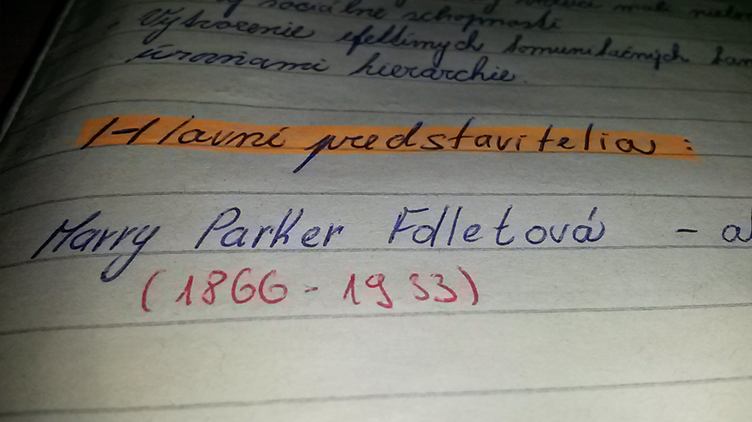 sociálne schopnosti
Vytvorenie efektívnych komunikačných
úrovňami hierarchie.
Hlavní predstavitelia:
Marry Parker Folletová - a
(1866 - 1933)